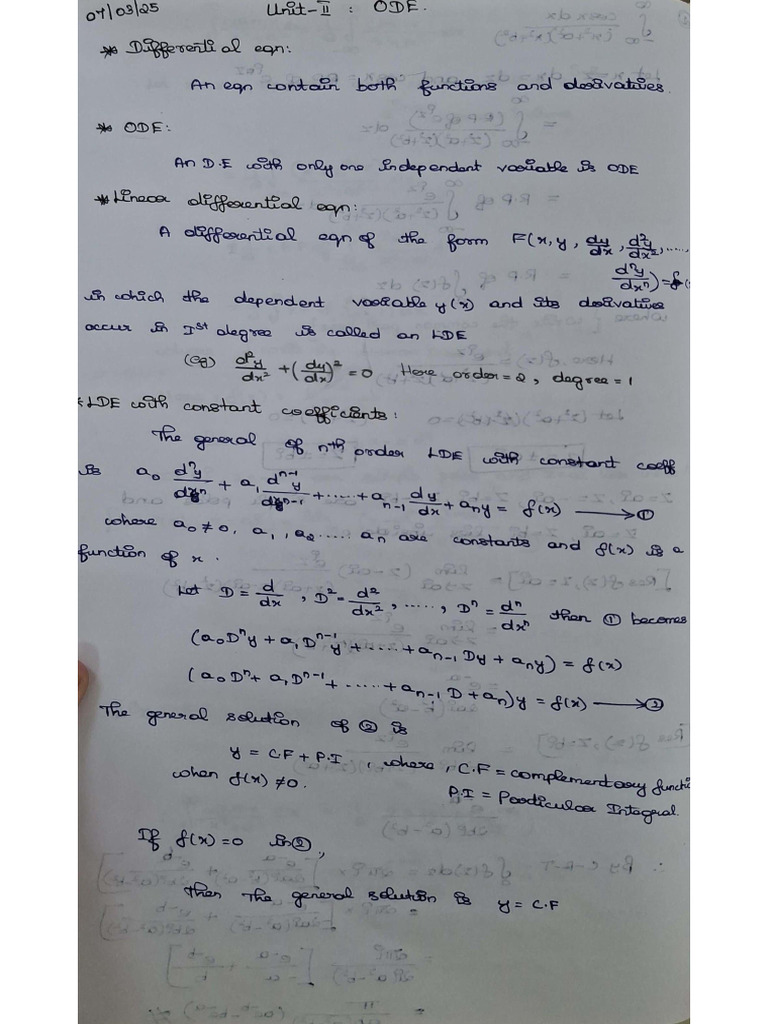 04/03/25 Unit-II : ODE.
* Differential eqn:
An eqn contain both functions and derivatives.
* ODE:
An D.E with only one independent variable is ODE
* Linear differential eqn:
A differential eqn of the form F(x, y, dy/dx, d²y/dx², .....,
dⁿy/dxⁿ) = f(
in which the dependent variable y(x) and its derivatives
occur in Ist degree is called an LDE
(eg) d²y/dx² + (dy/dx)² = 0 Here order = 2, degree = 1
* LDE with constant coefficients:
The general of nth order LDE with constant coeff
is a₀ dⁿy/dxⁿ + a₁ dⁿ⁻¹y/dxⁿ⁻¹ + ..... + aₙ₋₁ dy/dx + aₙy = f(x) → ①
where a₀ ≠ 0, a₁, a₂ ..... aₙ are constants and f(x) is a
function of x.
Let D = d/dx, D² = d²/dx², ....., Dⁿ = dⁿ/dxⁿ then ① becomes
(a₀Dⁿy + a₁Dⁿ⁻¹y + ..... + aₙ₋₁Dy + aₙy) = f(x)
(a₀Dⁿ + a₁Dⁿ⁻¹ + ..... + aₙ₋₁D + aₙ)y = f(x) → ②
The general solution of ② is
y = C.F + P.I, where, C.F = complementary functi
when f(x) ≠ 0. P.I = Particular Integral.
If f(x) = 0 in ②,
then The general solution is y = C.F